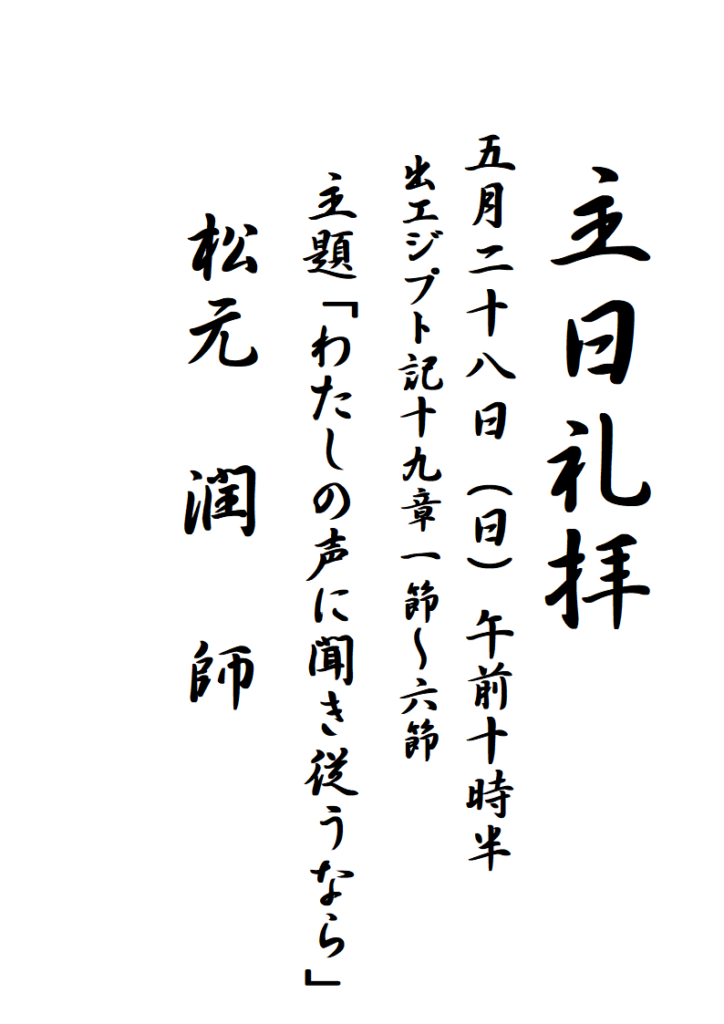 主日礼拝
五月二十八日（日）午前十時半
出エジプト記十九章一節～六節
主題「わたしの声に聞き従うなら」
松元　潤　師